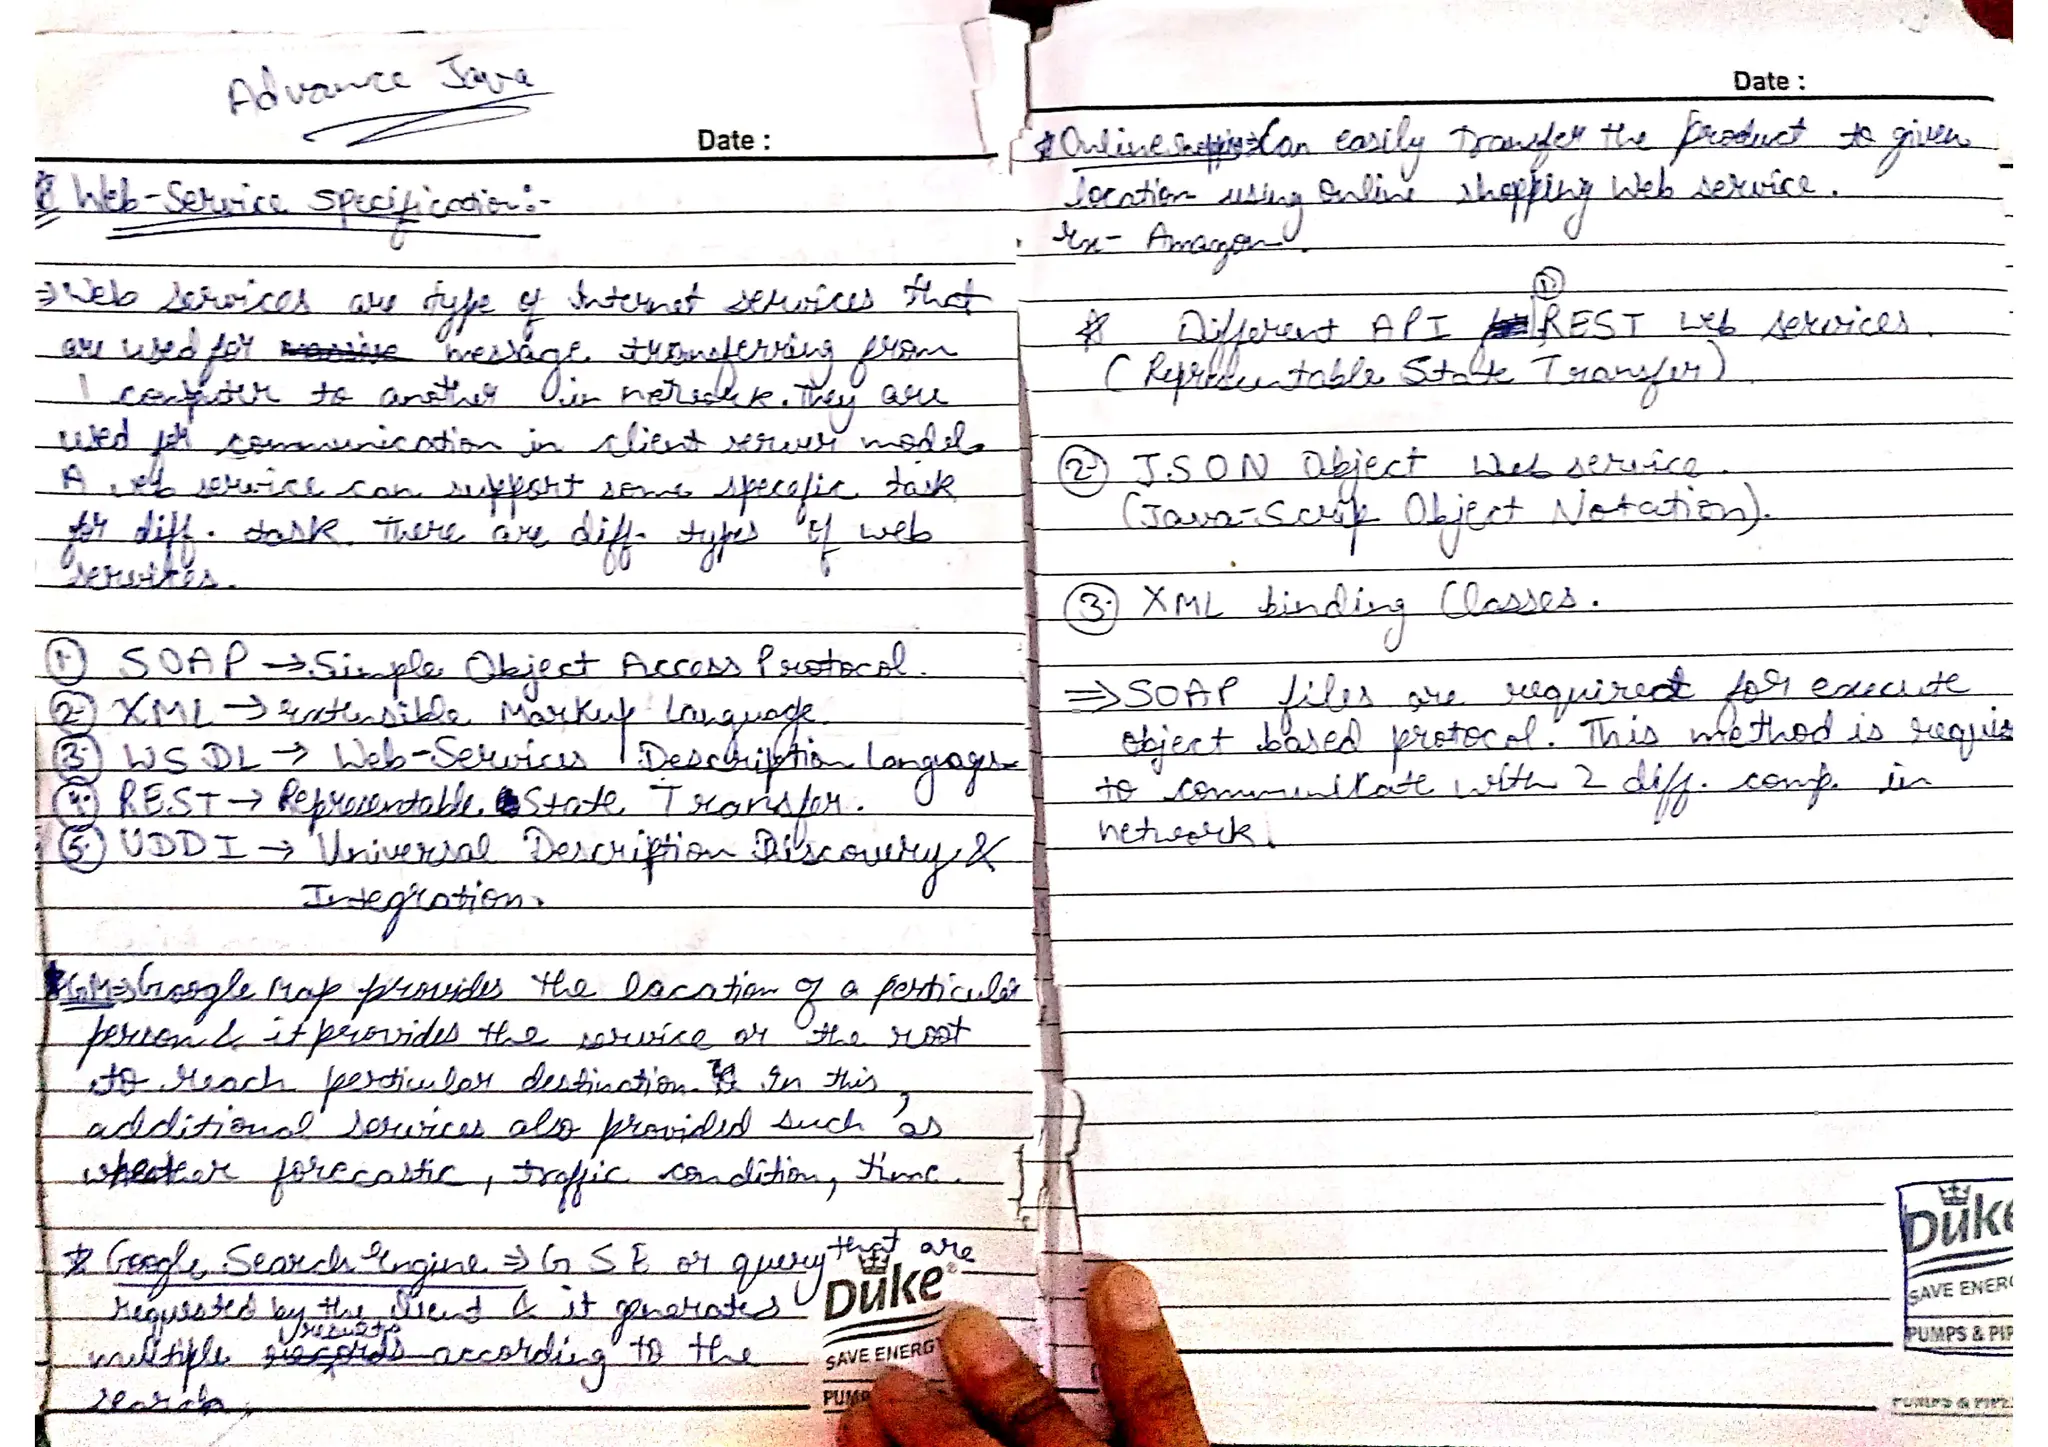 Advance Java
Date :
* Web-Service specification:-
⇒ Web services are type of Internet services that
are used for message transferring from
1 computer to another in network. They are
used for communication in client server model.
A web service can support some specefic task
for diff. task. There are diff. types of web
services.
1. SOAP → Simple Object Access Protocol.
2. XML → extensible Markup Language.
3. WSDL → Web-Services Description Langage
4. REST → Representable State Transfer.
5. UDDI → Universal Description Discovery &
Integration.
* GM → Google Map provides the location of a perticular
person & it provides the service or the root
to reach perticular destination. In this,
additional services also provided such as
wheather forecastic, traffic condition, time.
* Google Search Engine ⇒ G S E or query that are
requested by the client & it generated
multiple results according to the
search.
Duke®
SAVE ENERG
PUMP
Date :
* Online Shopping → Can easily Transfer the product to given
location using Online shopping Web service.
Ex- Amazon.
* Different API 1. REST Web services.
(Representable State Transfer)
2. J.SON Object Web service.
(Java-Scrip Object Notation).
3. XML binding Classes.
⇒ SOAP files are required for execute
object based protocol. This method is requir
to communikate with 2 diff. comp. in
network.
Duke
SAVE ENERG
PUMPS & PIP
PUMPS & PIPE